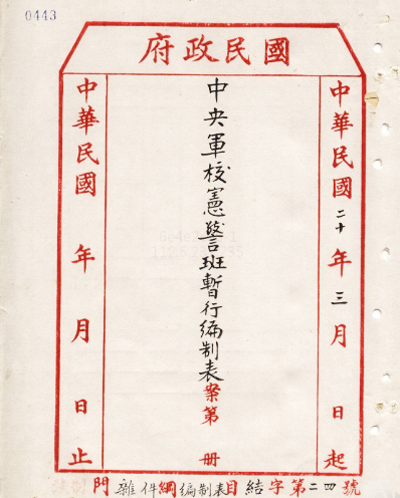 0443
國民政府
中華民國二十年三月 日起
中央軍校憲警班暫行編制表案第 冊
中華民國 年 月 日止
號四二第字結目編制表綱雜件門